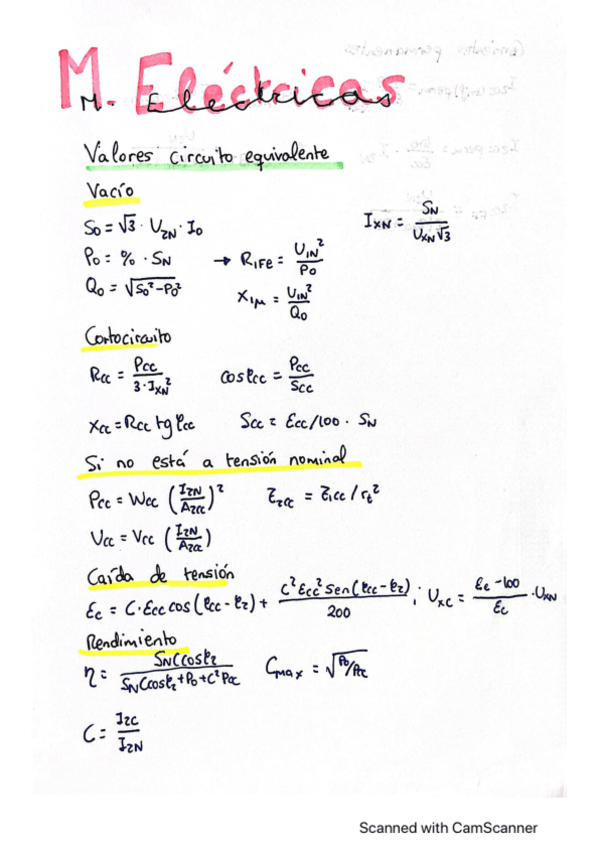 M. Eléctricas
M. Eléctricas
Valores circuito equivalente
Vacío
S0 = √3 · U2N · I0
IXN = SN / UXN√3
P0 = % · SN → R1Fe = U1N² / P0
Q0 = √S0² - P0²
X1μ = U1N² / Q0
Cortocircuito
Rcc = Pcc / 3 · IXN² cosφcc = Pcc / Scc
Xcc = Rcc tgφcc Scc = Ecc/100 · SN
Si no está a tensión nominal
Pcc = Wcc (I2N / A2cc)² Z2cc = Z1cc / rt²
Ucc = Vcc (I2N / A2cc)
Caída de tensión
Ec = C · Ecc cos(φcc - φ2) + C² Ecc² sen(φcc - φ2) / 200 ; UXC = Ec - 100 / Ec · UXN
Rendimiento
η = SN C cosφ2 / SN C cosφ2 + P0 + C² Pcc Cmax = √P0/Pcc
C = I2C / I2N
Scanned with CamScanner